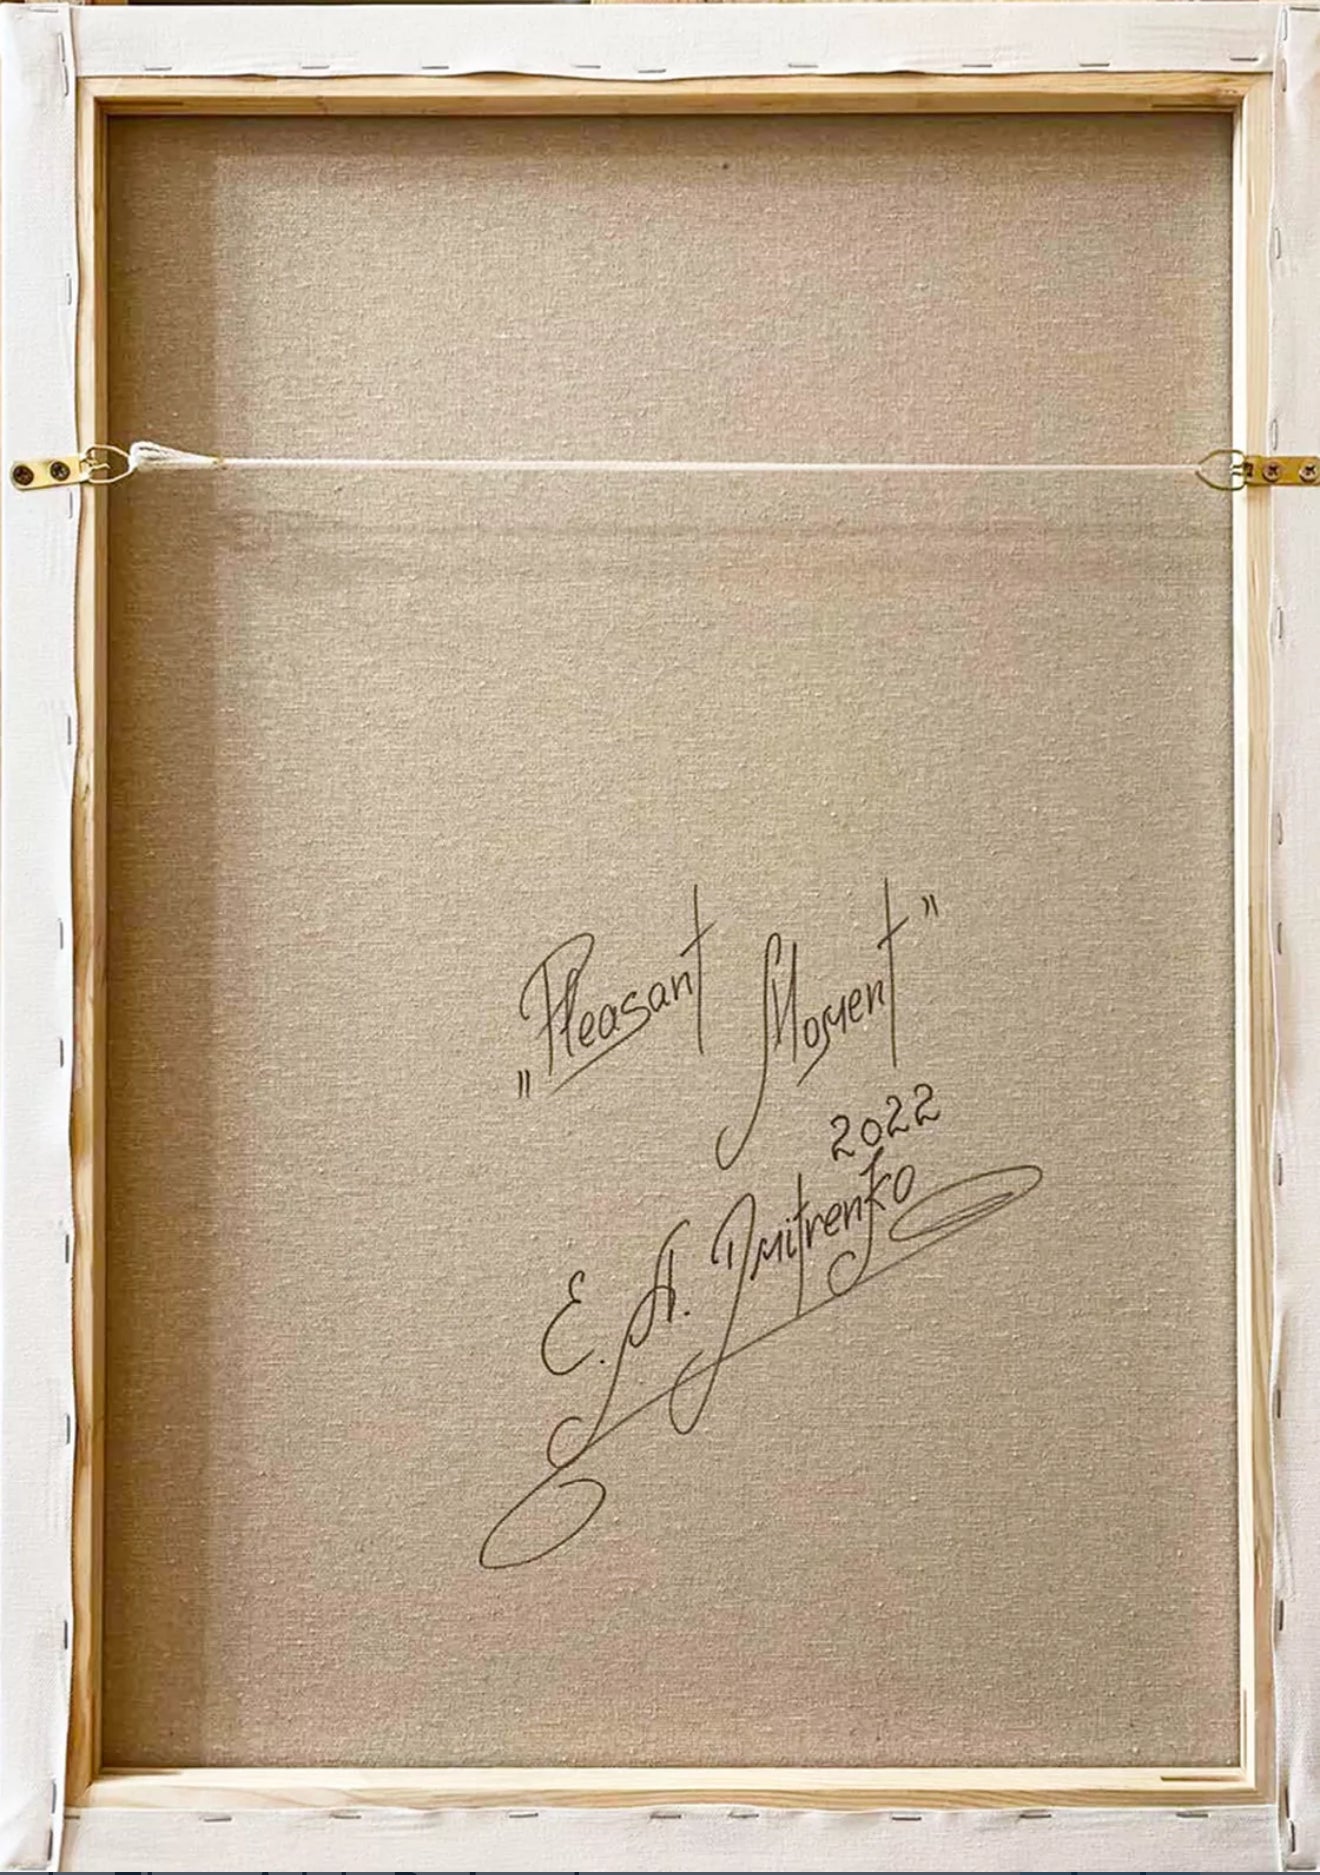 „Pleasant Moment"
2022
E. A. Dmitrenko